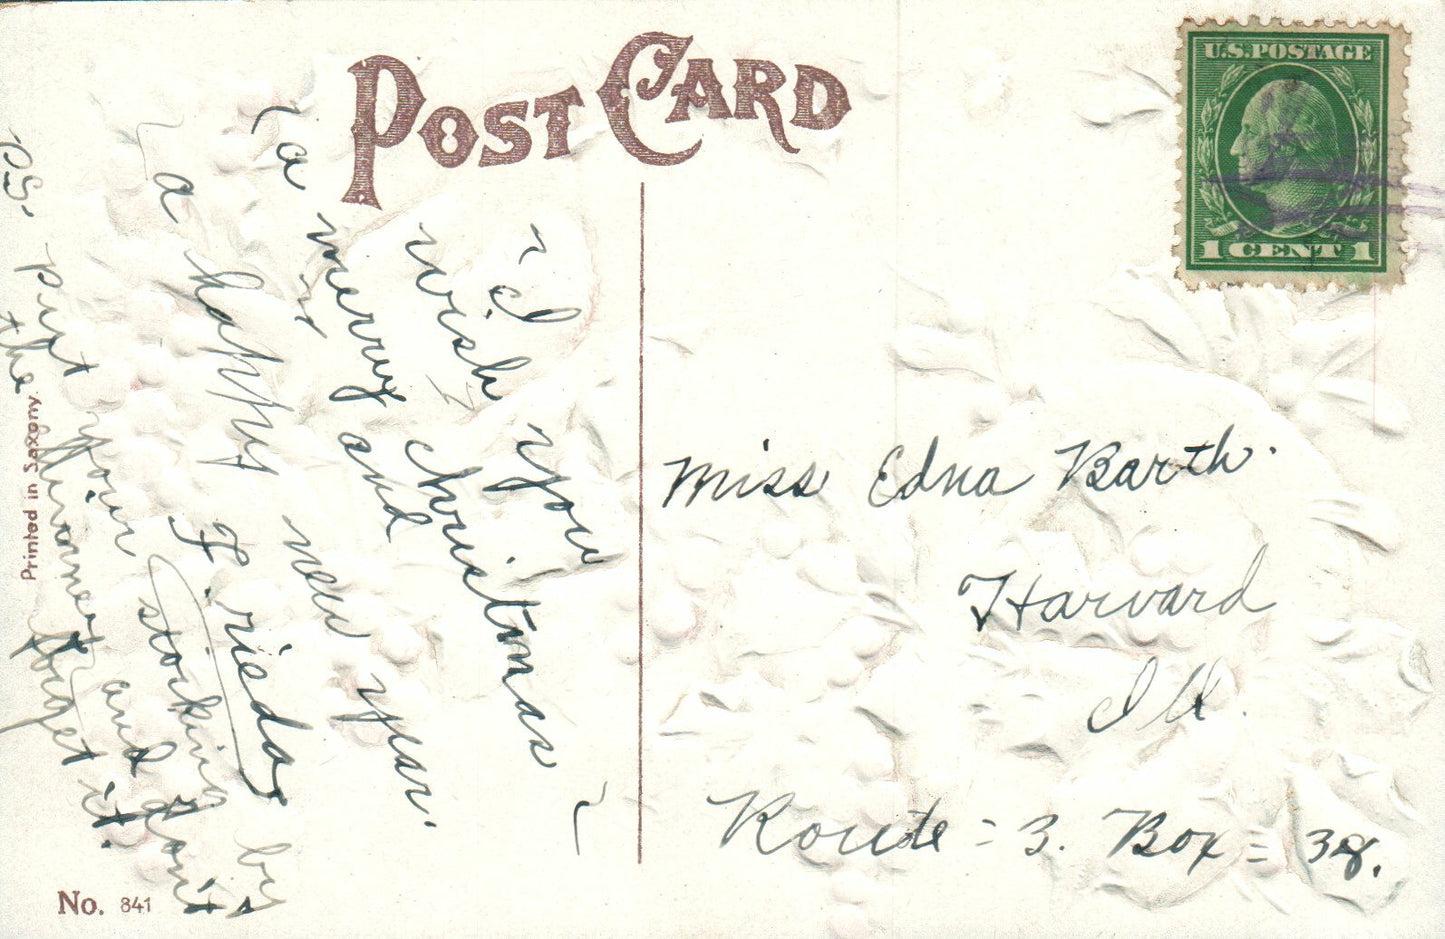 POST CARD
U.S. POSTAGE
1 CENT 1
I wish you
a merry christmas
and
a happy new year.
Frieda
P.S. put your stocking by
the chimney and don't
forget it.
Miss Edna Barth.
Harvard
Ill.
Route = 3. Box = 38.
Printed in Saxony.
No. 841